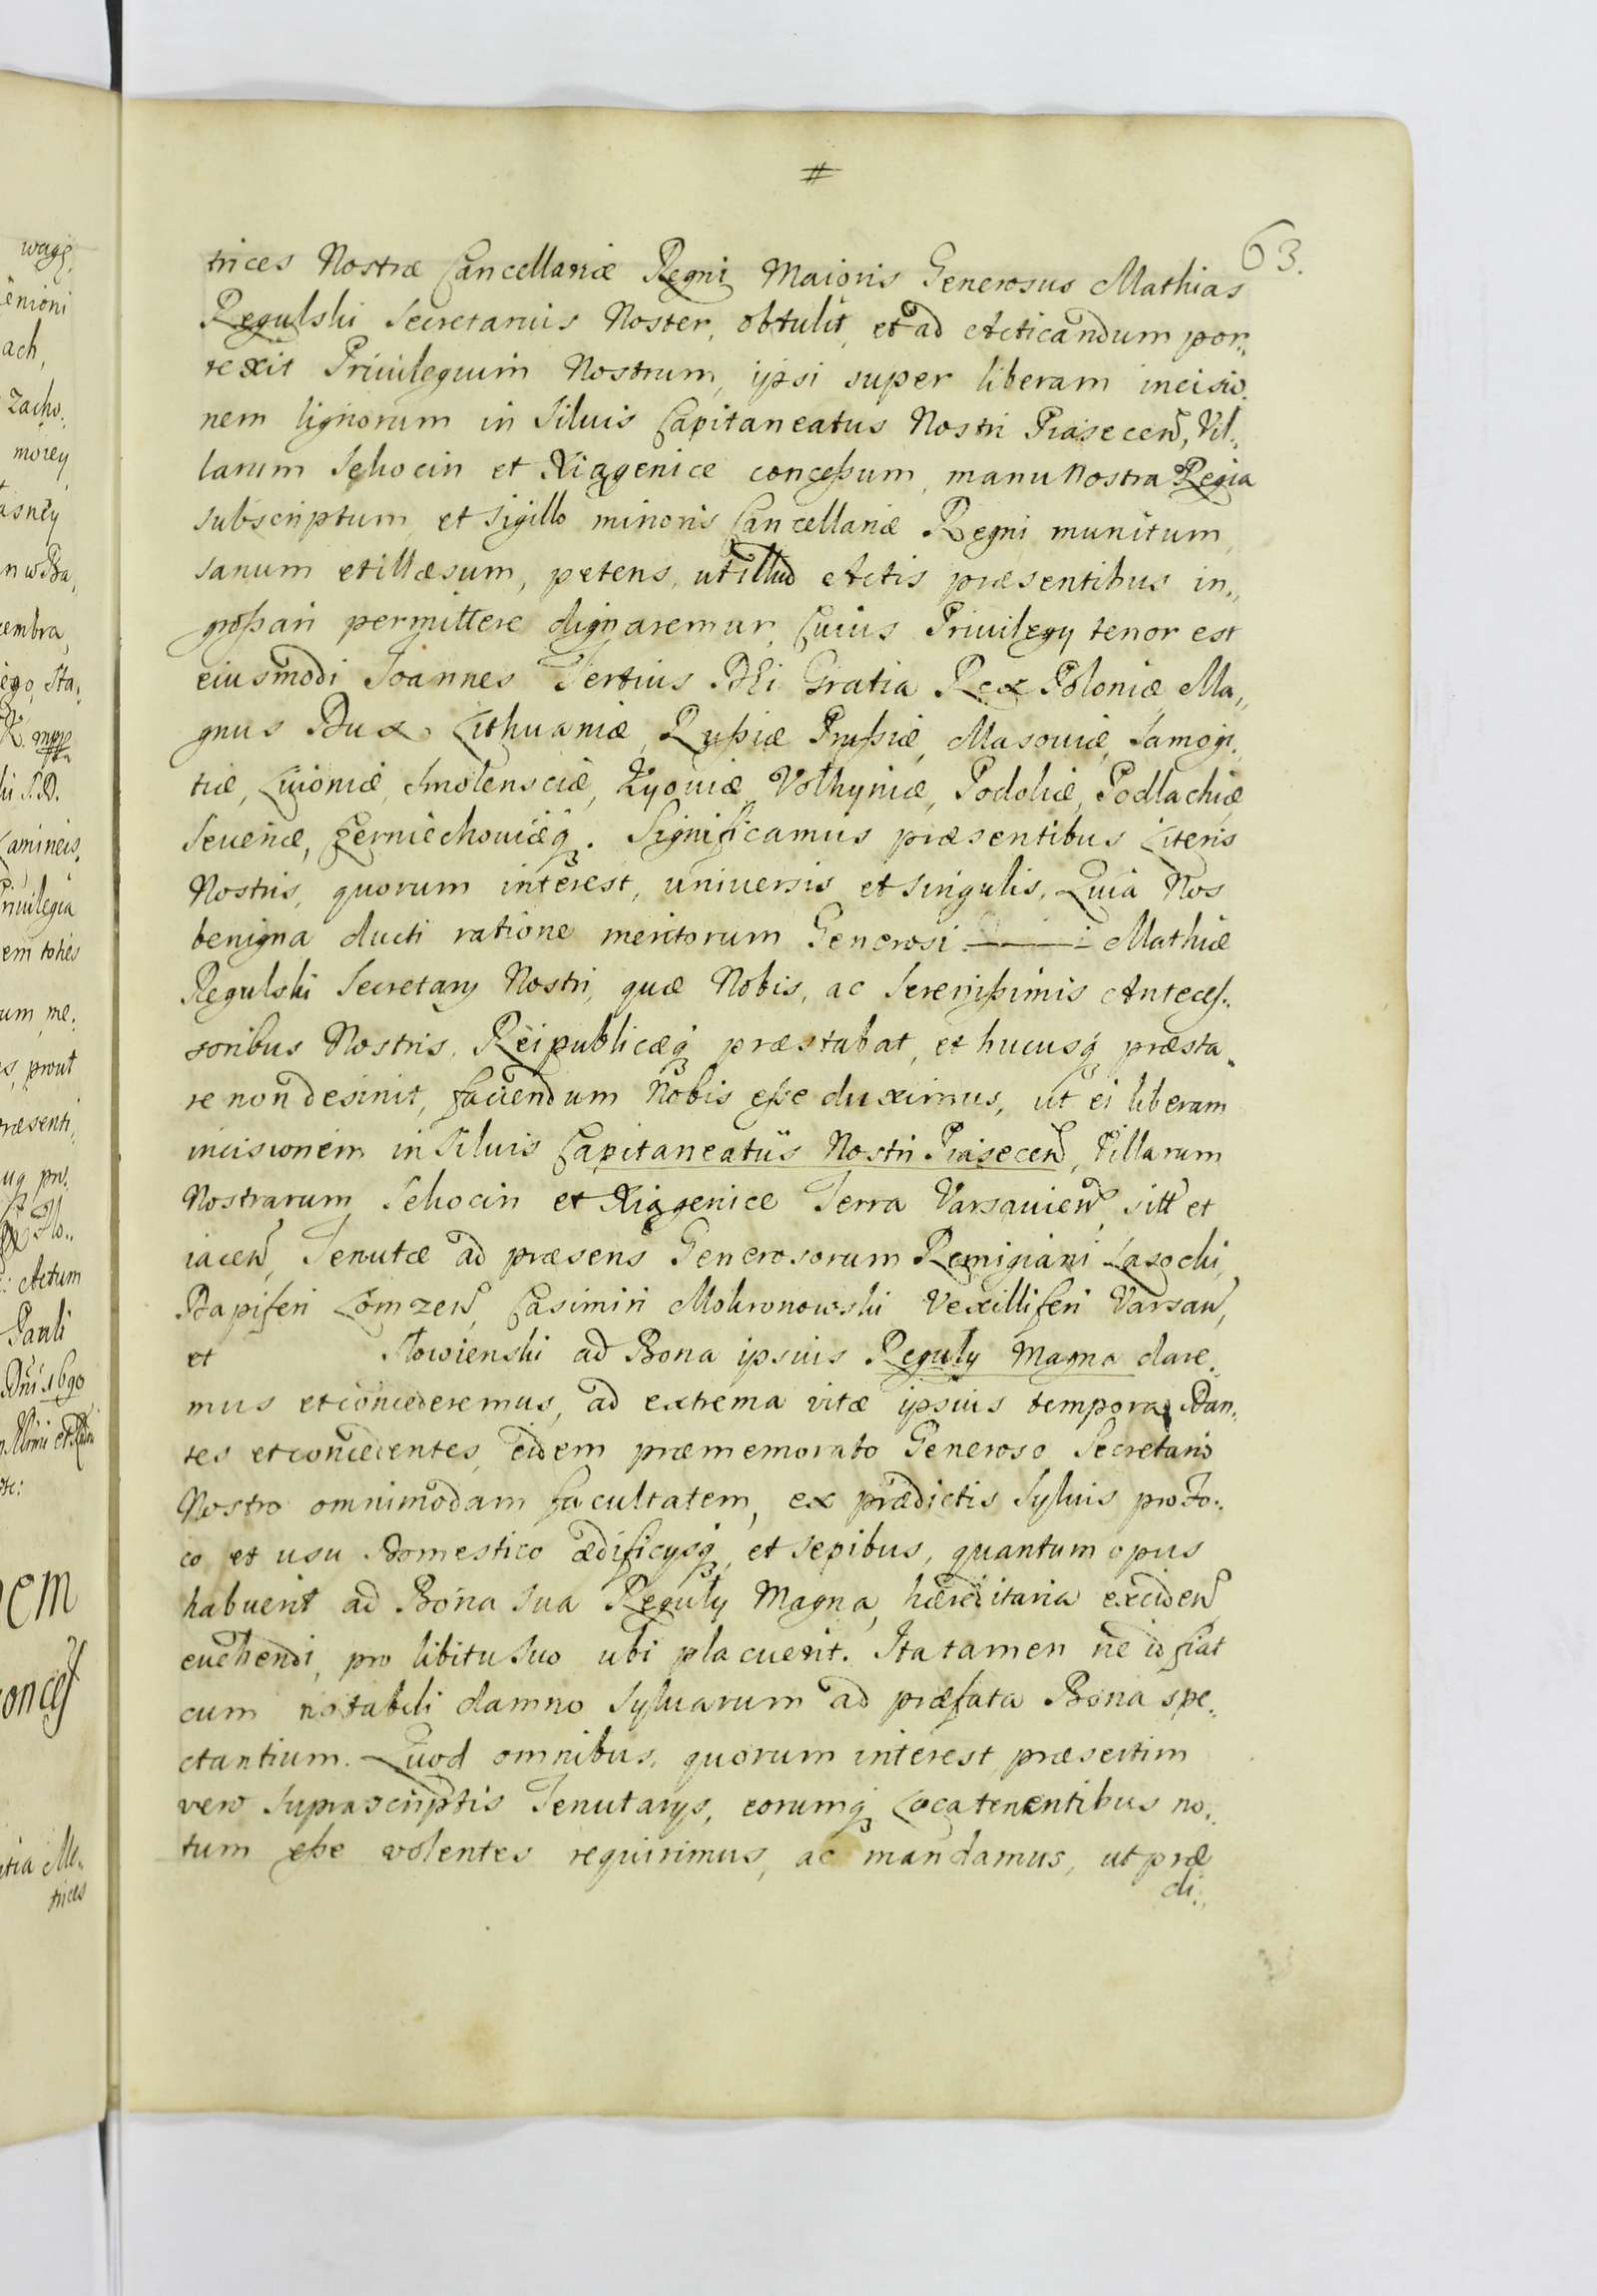 #
63.
trices Nostræ Cancellariæ Regni Maioris Generosus Mathias
Regulski Secretarius Noster, obtulit, et ad Acticandum por„
rexit Priuilegium Nostrum, ipsi super liberam incisio„
nem lignorum in Siluis Capitaneatus Nostri Piasecen, Vil„
larum Sękocin et Xiązenice concessum, manu Nostra Regia
subscriptum, et sigillo minoris Cancellariæ Regni munitum,
sanum et illæsum, petens, ut illud Actis præsentibus in„
grossari permittere dignaremur, Cuius Priuilegy tenor est
eiusmodi Joannes Tertius DEi Gratia Rex Poloniæ, Ma„
gnus Dux Lithuaniæ, Russiæ Prussiæ, Masouiæ, Samogi„
tiæ, Liuoniæ, Smolensciæ, Kyouiæ, Volhyniæ, Podoliæ, Podlachiæ,
Seueriæ, Czerniechouiæq. Significamus præsentibus Literis
Nostris, quorum interest, uniuersis et singulis, Quia Nos
benigna ducti ratione meritorum Generosi ——— Mathiæ
Regulski Secretary Nostri, quæ Nobis, ac Serenissimis Antecess„
soribus Nostris, Reipublicæq præstabat, et hucusq præsta„
re non desinit, faciendum Nobis esse duximus, ut ei liberam
incisionem in Siluis Capitaneatus Nostri Piasecen, Villarum
Nostrarum Sękocin et Xiązenice Terra Varsauien sitt et
iacen, Tenutæ ad præsens Generosorum Remigiani Lasocki,
Dapiferi Lomzen, Casimiri Mokronowski Vexilliferi Varsau,
et Słowienski ad Bona ipsius Reguly Magna dare„
mus et concederemus, ad extrema vitæ ipsius tempora, Dan„
tes et concedentes, eidem præmemorato Generoso Secretario
Nostro omnimodam facultatem, ex prædictis Syluis pro Fo„
co et usu Domestico ædificysq, et sepibus, quantum opus
habuerit ad Bona sua Reguly Magna, hæreditaria exciden
euehendi, pro libitu suo ubi placuerit. Ita tamen ne id fiat
cum notabili damno Syluarum ad præfata Bona spe„
ctantium. Quod omnibus, quorum interest, præsertim
vero Suprascriptis Tenutarys, eorumq Locatenentibus no„
tum esse volentes requirimus, ac mandamus, ut præ
di„